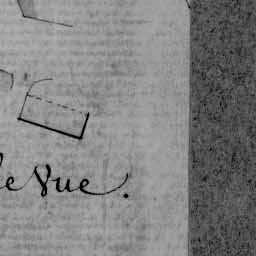 le Vue.